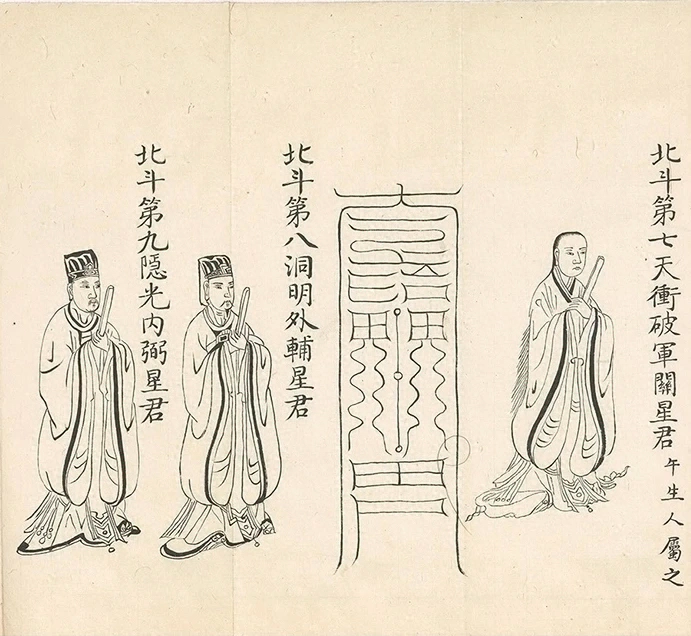 北斗第七天衝破軍關星君 午生人屬之
北斗第八洞明外輔星君
北斗第九隱光內弼星君